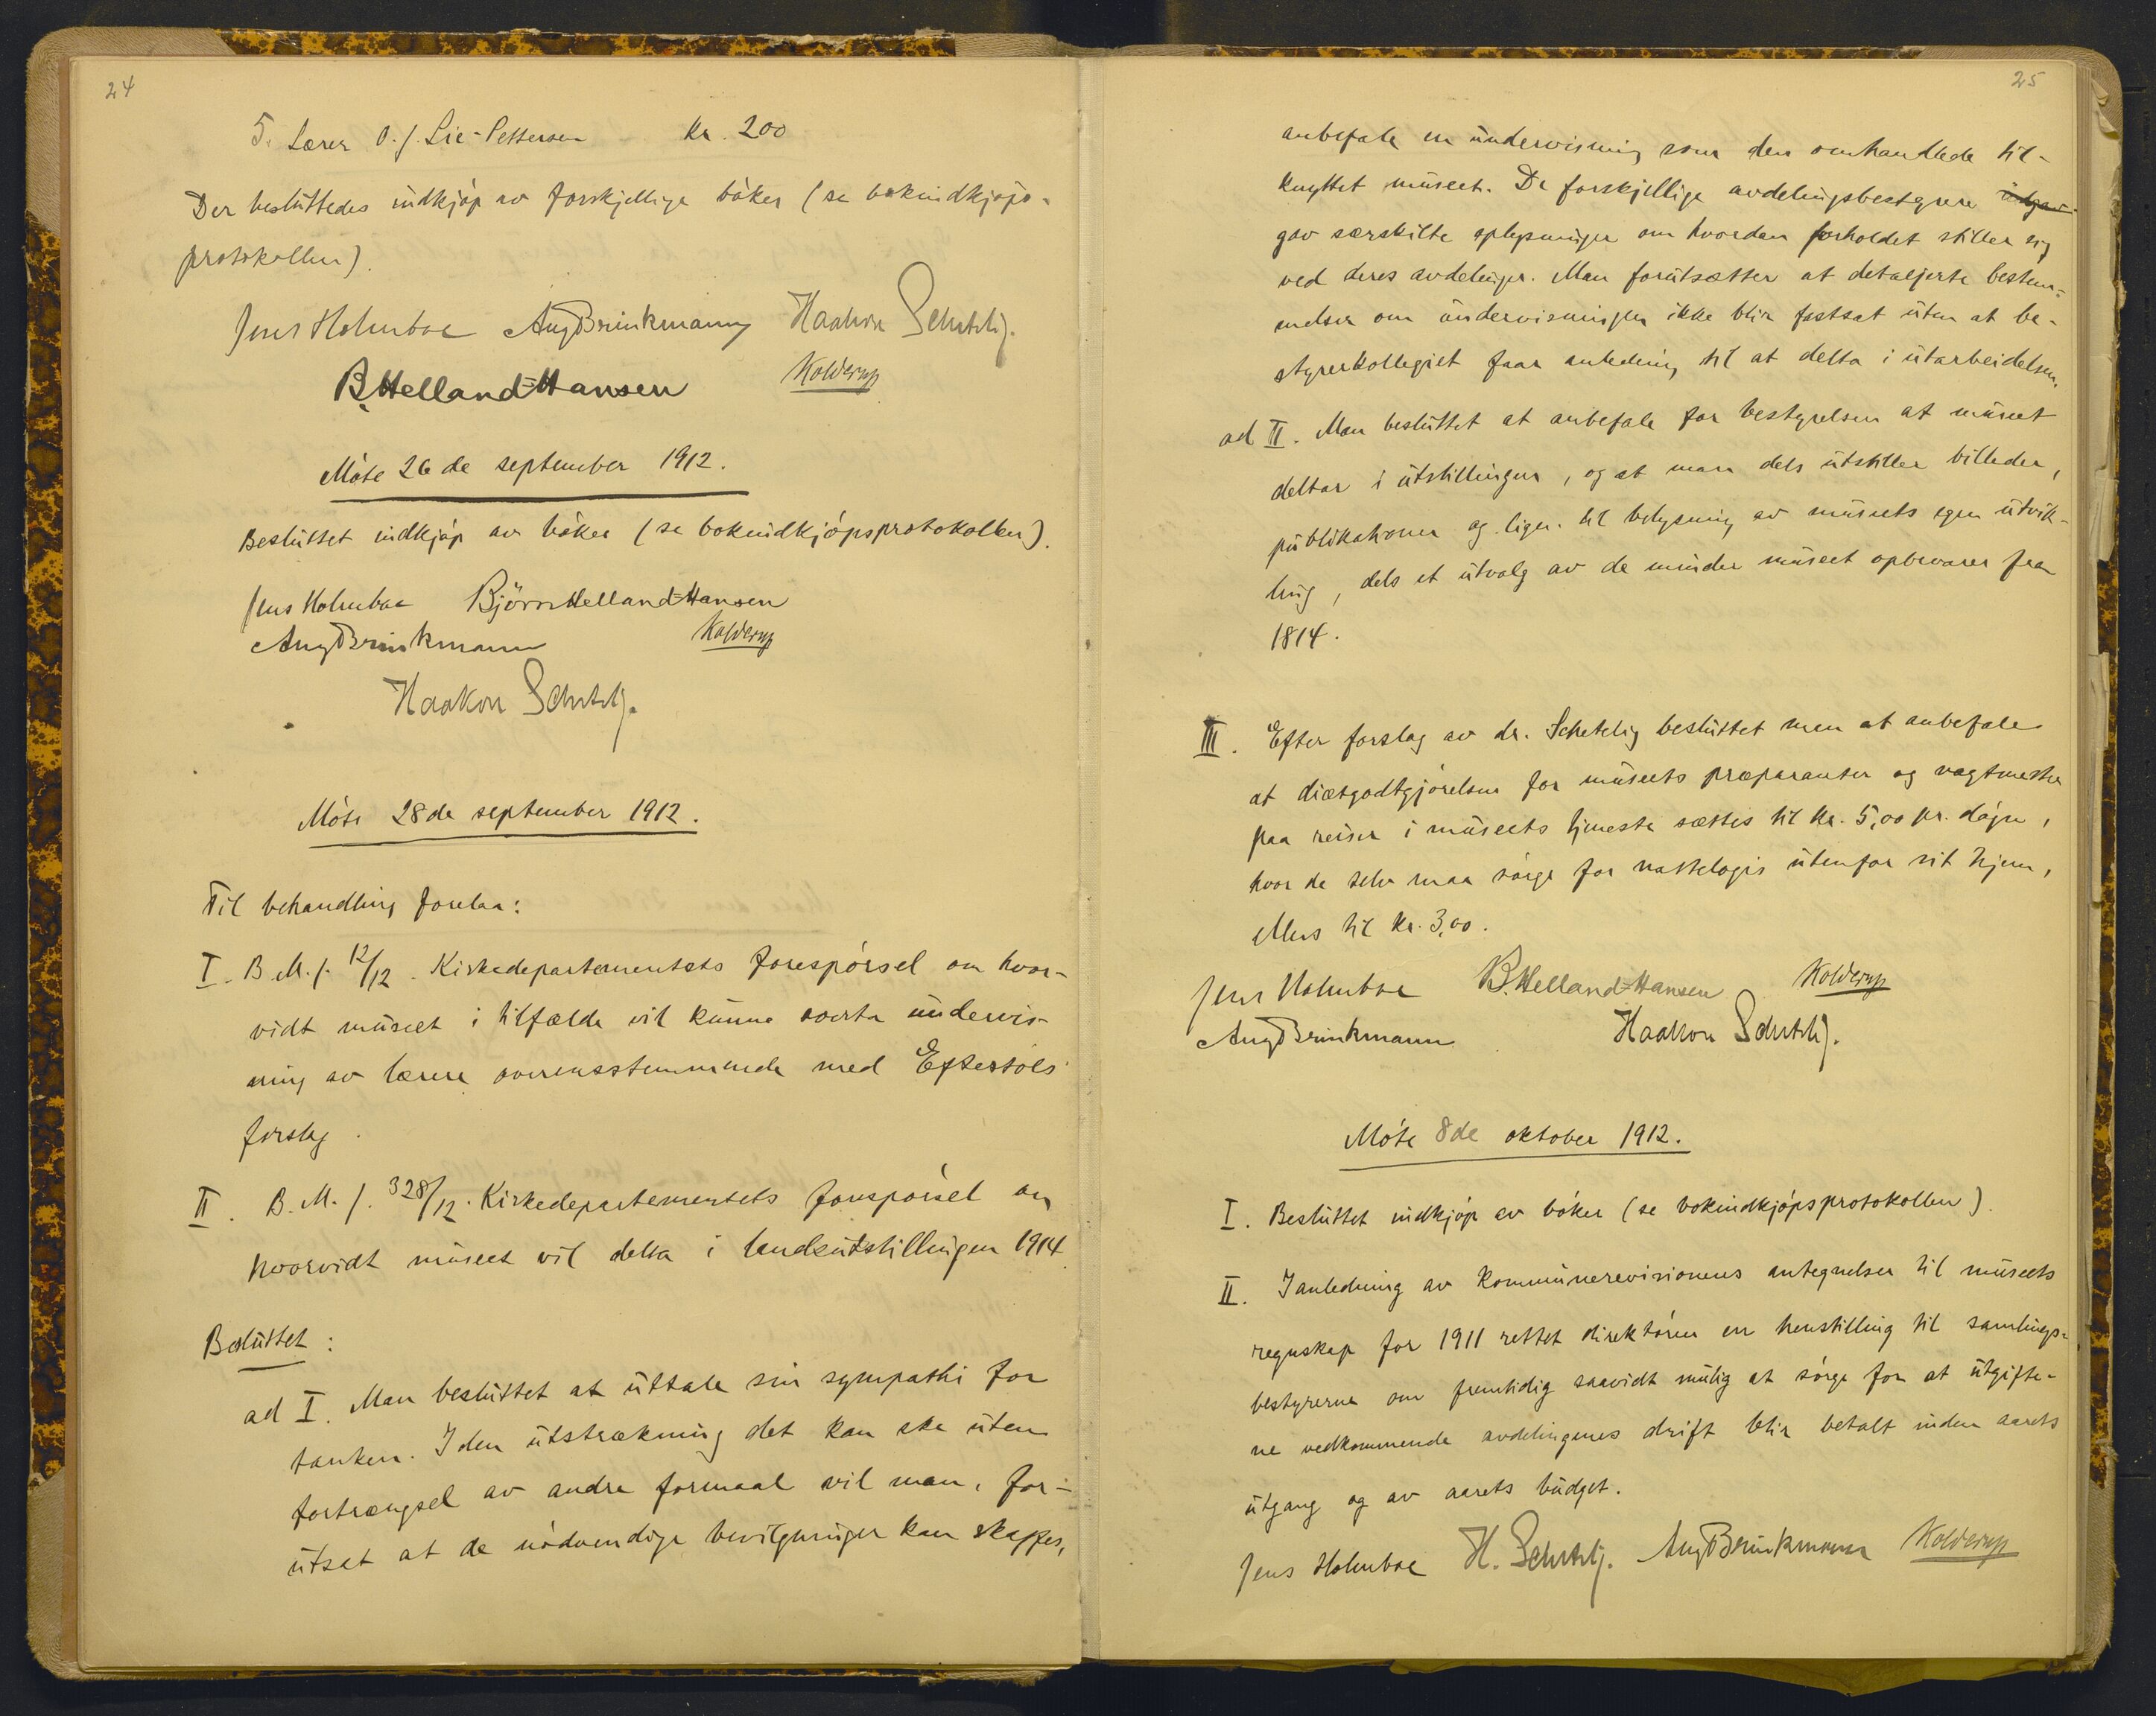 24
5. Lærer O. J. Lie-Pettersen kr. 200
Der besluttedes indkjøp av forskjellige bøker (se bokindkjøps-
protokollen).
Jens Holmboe Aug Brinkmann Haakon Schetelig.
B. Helland-Hansen Kolderup
Møte 26de september 1912.
Besluttet indkjøp av bøker (se bokindkjøpsprotokollen).
Jens Holmboe Bjørn Helland-Hansen
Aug Brinkmann Kolderup
Haakon Schetelig.
Møte 28de september 1912.
Til behandling forelaa:
I. B. M. J. 12/12. Kirkedepartementets forespørsel om hvor-
vidt museet i tilfælde vil kunne overta undervis-
ning av lærere overensstemmende med Eftestøls
forslag.
II. B. M. J. 328/12. Kirkedepartementets forespørsel om
hvorvidt museet vil delta i landsutstillingen 1914.
Besluttet:
ad I. Man besluttet at uttale sin sympathi for
tanken. I den utstrækning det kan ske uten
fortrængsel av andre formaal vil man, for-
utsat at de nødvendige bevilgninger kan skaffes,
25
anbefale en undervisning som den omhandlede til-
knyttet museet. De forskjellige avdelingsbestyrere utgav
gav særskilte oplysninger om hvordan forholdet stiller sig
ved deres avdelinger. Man forutsætter at detaljerte bestem-
melser om undervisningen ikke blir fastsat uten at be-
styrerkollegiet faar anledning til at delta i utarbeidelsen.
ad II. Man besluttet at anbefale for bestyrelsen at museet
deltar i utstillingen, og at man dels utstiller billeder,
publikationer og lign. til belysning av museets egen utvik-
ling, dels et utvalg av de minder museet opbevarer fra
1814.
III. Efter forslag av dr. Schetelig besluttet man at anbefale
at diætgodtgjørelsen for museets præparanter og vagtmester
paa reiser i museets tjeneste sættes til kr. 5,00 pr. døgn,
hvor de selv maa sørge for nattelogis utenfor sit hjem,
ellers til kr. 3,00.
Jens Holmboe B. Helland-Hansen Kolderup
Aug Brinkmann Haakon Schetelig.
Møte 8de oktober 1912.
I. Besluttet indkjøp av bøker (se bokindkjøpsprotokollen).
II. I anledning av kommunerevisionens antegnelser til museets
regnskap for 1911 rettet direktøren en henstilling til samlings-
bestyrerne om fremtidig saavidt mulig at sørge for at utgifte-
ne vedkommende avdelingenes drift blir betalt inden aarets
utgang og av aarets budget.
Jens Holmboe H. Schetelig. Aug Brinkmann Kolderup